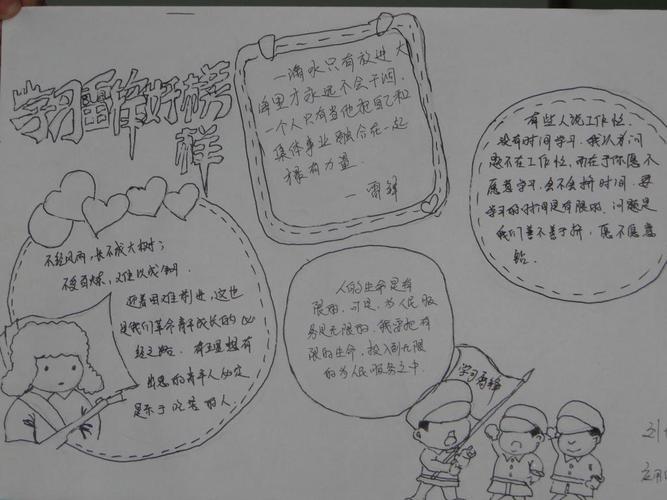 学习雷锋好榜
样
一滴水只有放进大
海里才永远不会干涸,
一个人只有当他把自己和
集体事业融合在一起
才有力量
一雷锋
有些人说工作忙、
没有时间学习,我认为问
题不在工作忙,而在于你愿不
愿意学习,会不会挤时间,要
学习的时间是有限的,问题是
我们善不善于挤,愿不愿意
钻.
不经风雨,长不成大树;
不受百炼,难以成钢.
迎着困难前进,这也
是我们革命青年成长的必
经之路.有理想有
出息的青年人必定
是乐于吃苦的人.
人的生命是有
限的,可是,为人民服
务是无限的,我要把有
限的生命,投入到无限
的为人民服务之中.
学习雷锋